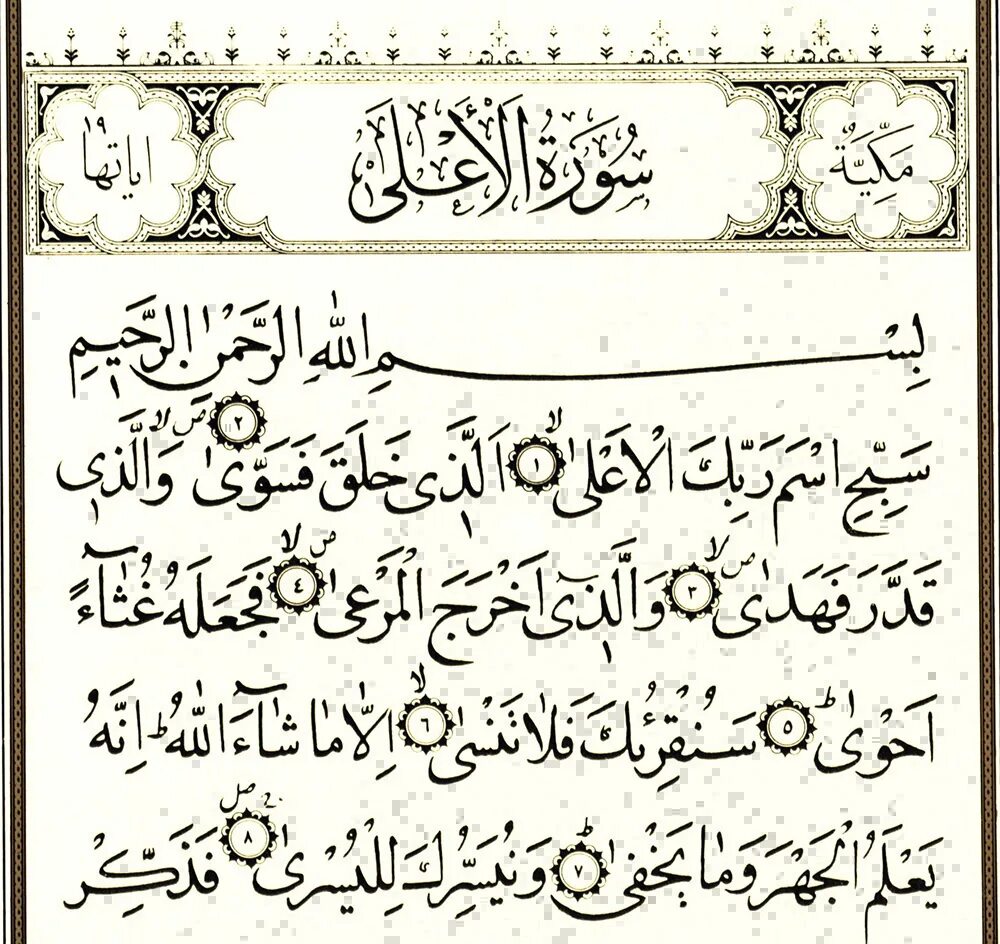 مَكِّيَّةٌ
سُورَةُ الْأَعْلَى
اياتها ١٩
بِسْمِ اللّٰهِ الرَّحْمٰنِ الرَّحِيمِ
سَبِّحِ اسْمَ رَبِّكَ الْاَعْلٰى ۙ ﴿١﴾ اَلَّذٖى خَلَقَ فَسَوّٰى ﴿٢﴾ ص لا وَالَّذٖى
قَدَّرَ فَهَدٰى ص لا ﴿٣﴾ وَالَّذٖٓى اَخْرَجَ الْمَرْعٰى ص لا ﴿٤﴾ فَجَعَلَهُ غُثَٓاءً
اَحْوٰى ط ﴿٥﴾ سَنُقْرِئُكَ فَلَا تَنْسٰى ۙ ﴿٦﴾ اِلَّا مَا شَٓاءَ اللّٰهُ ط اِنَّهُ
يَعْلَمُ الْجَهْرَ وَمَا يَخْفٰى ط ﴿٧﴾ وَنُيَسِّرُكَ لِلْيُسْرٰى صل ﴿٨﴾ فَذَكِّرْ